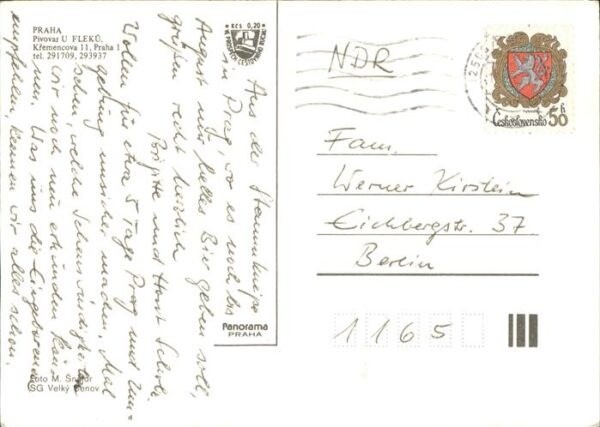 PRAHA
Pivovar U FLEKŮ,
Křemencova 11, Praha 1
tel. 291709, 293937
Kčs 0,20
Aus der Stammkneipe
in Prag, wo es noch bis
August nur helles Bier geben soll,
grüßen recht herzlich
Brigitte und Horst
Wollen für etwa 5 Tage Prag und Um=
gebung unsicher machen. Mal
sehen, welche Sehenswürdigkeiten
wir noch neu erkunden kön=
nen. Was uns die Eingeborenen
empfehlen, kennen wir alles schon.
Foto M. Šnajdr
SG Velký Šenov
Panorama
PRAHA
NDR
Československo
50 h
Fam.
Werner Kirstein
Eichbergstr. 37
Berlin
1165